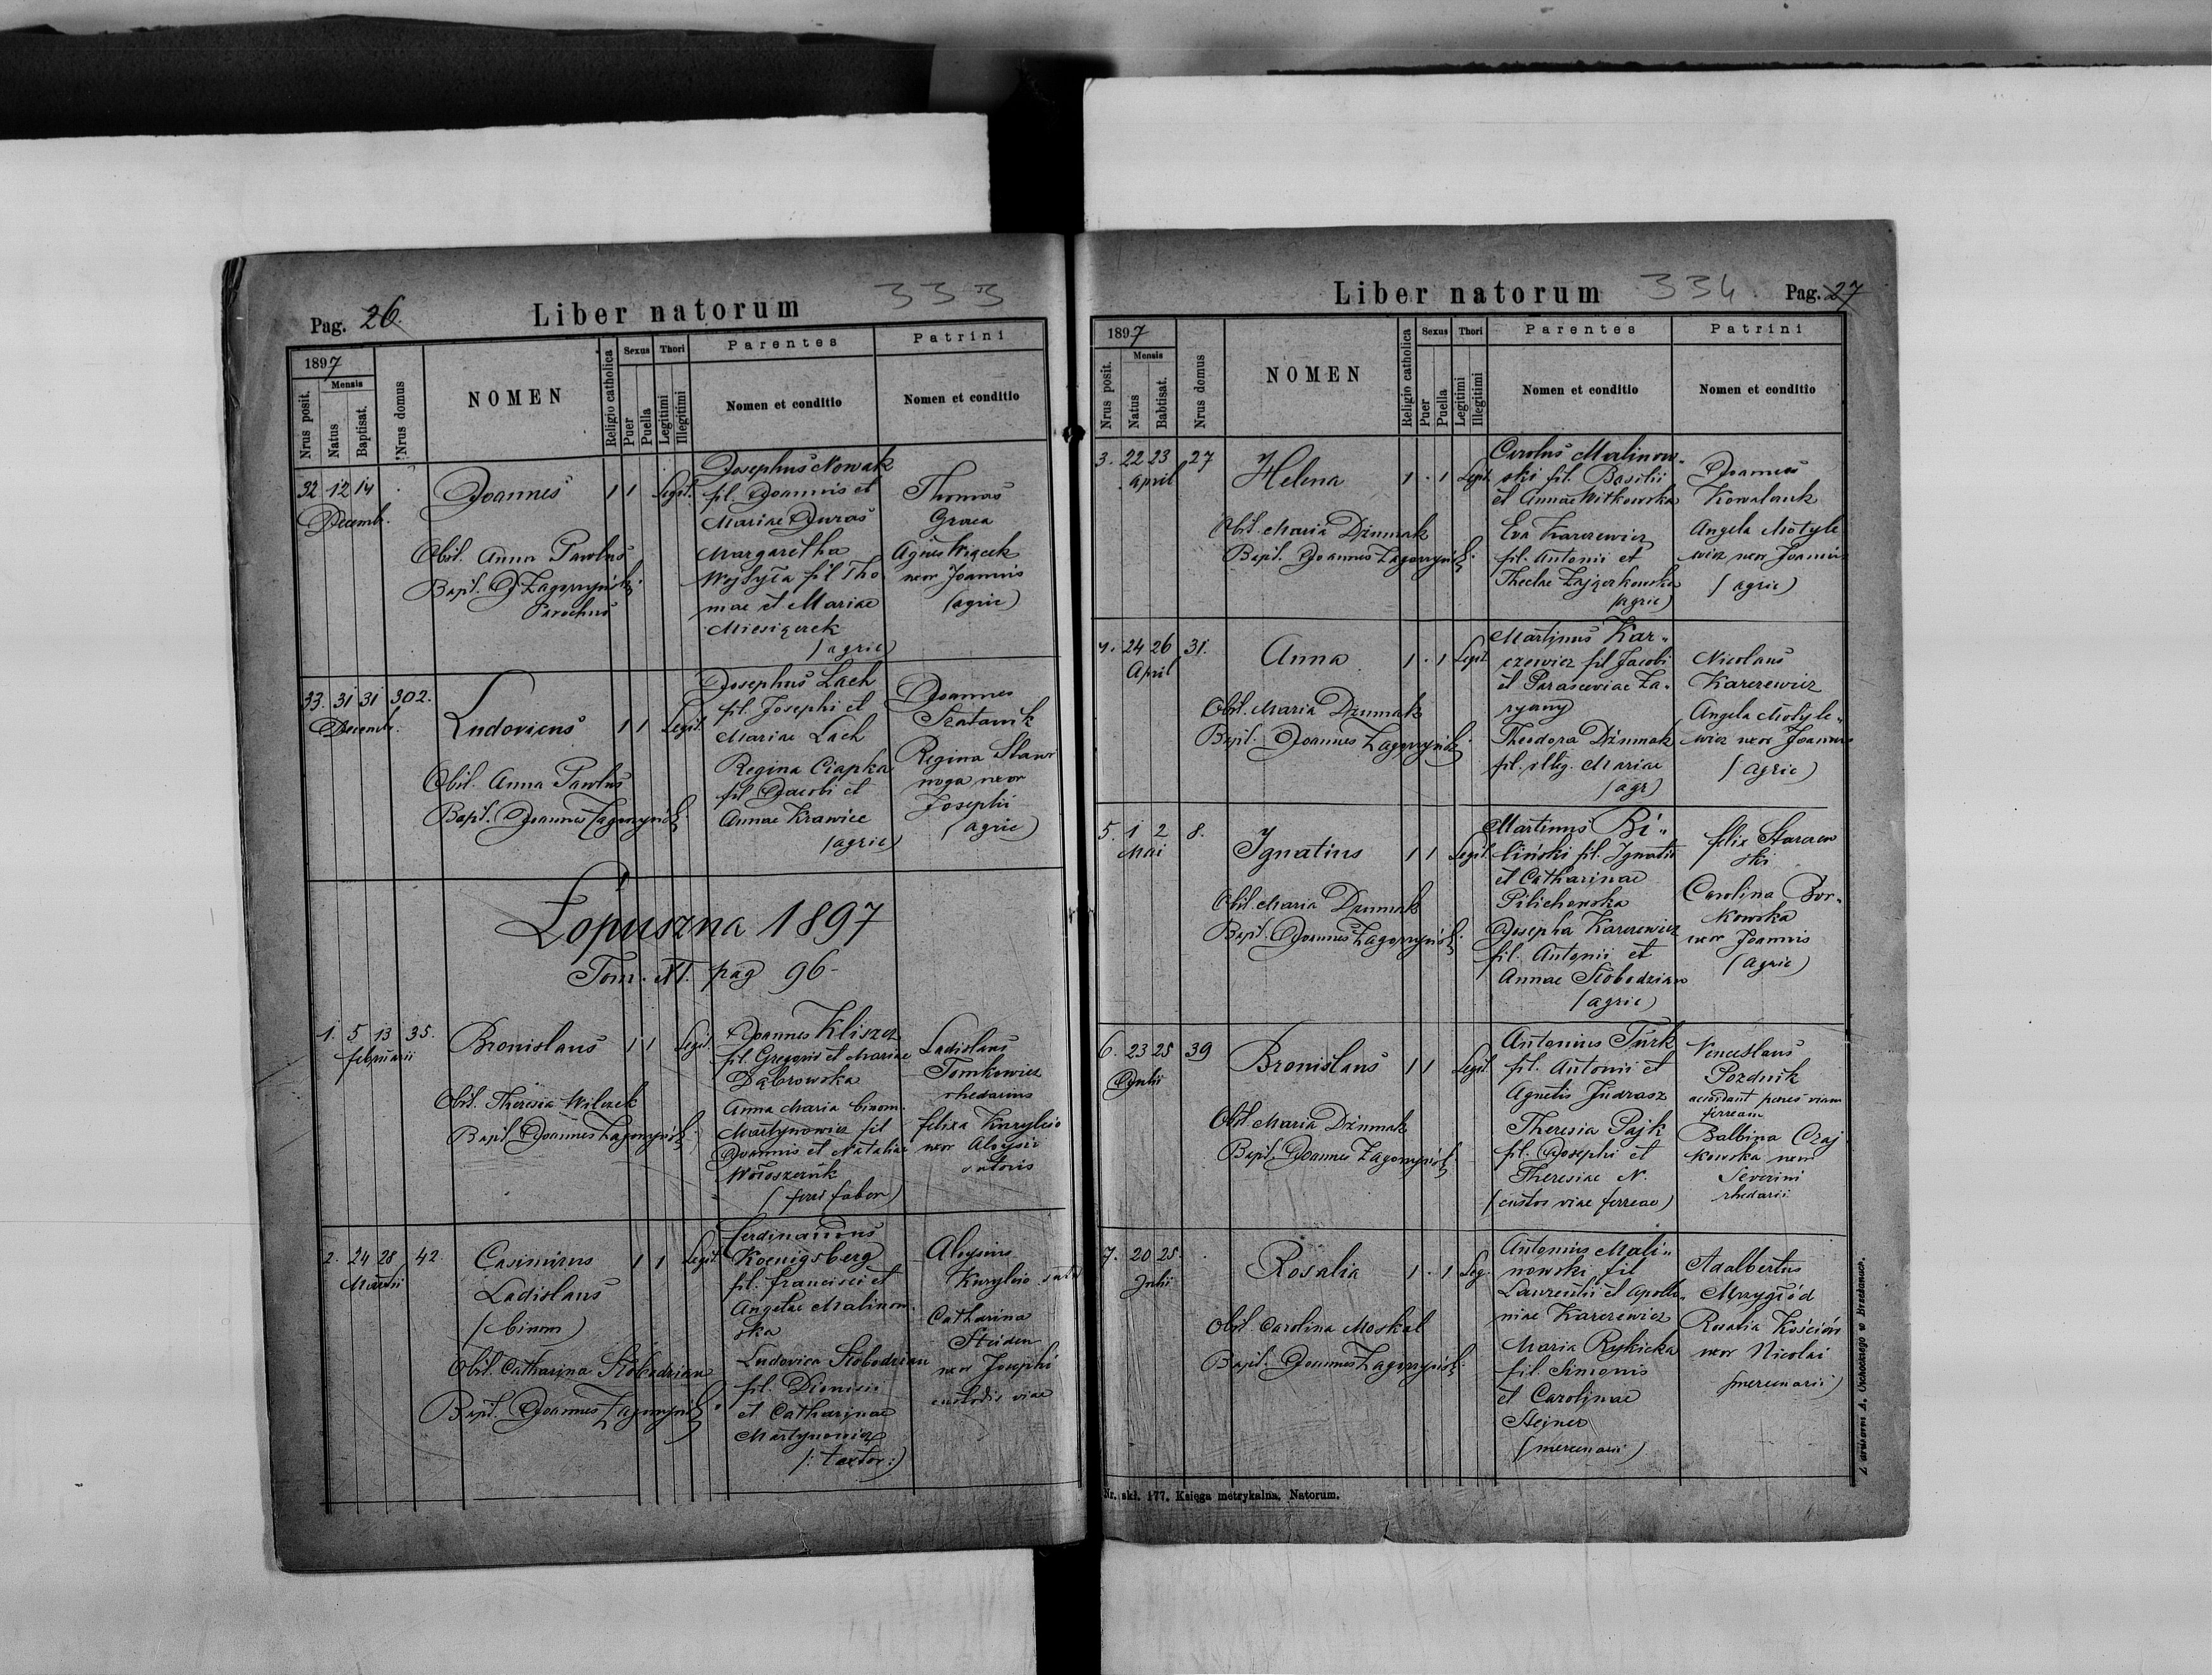 Pag. 26.
Liber natorum
333
1897
Nrus posit.
Mensis
Natus
Baptisat.
Nrus domus
NOMEN
Religio catholica
Sexus
Puer
Puella
Thori
Legitimi
Illegitimi
Parentes
Nomen et conditio
Patrini
Nomen et conditio
32 12 14
Decembr.
Joannes
1 1 Legit.
Obst. Anna Pawlus
Bapt. J Zagorzyński
Parochus
Josephus Nowak
fil. Joannis et
Mariae Duras
Margaretha
Wojtyła fil Tho
mae et Mariae
Miesiączek
(agric)
Thomas
Graca
Agnes Wiącek
uxor Joannis
(agric)
33. 31 31 302.
Decembr.
Ludovicus
1 1 Legit.
Obst. Anna Pawlus
Bapt. Joannes Zagorzyński
Josephus Lach
fil. Josephi et
Mariae Lach
Regina Ciapka
fil Jacobi et
Annae Krawiec
(agric)
Joannes
Szatanik
Regina Star
noga uxor
Josephi
(agric)
Łopuszna 1897
Tom. XI. pag 96-
1. 5 13 35.
februarii
Bronislaus
1 1 Legit.
Obst. Theresia Wilczek
Bapt Joannes Zagorzyński
Joannes Kliszcz
fil. Gregorii et Mariae
Dąbrowska
Anna Maria binom.
Martynowicz fil
Joannis et Nataliae
Wołoszczuk
(ferri faber)
Ladislaus
Tomkowicz
rhedarius
felixa Kurylcio
uxor Aloysii
sutoris
2. 24 28 42.
Martii
Casimirus
Ladislaus
(binom)
1 1 Legit
Obst. Catharina Słobodzian
Bapt. Joannes Zagorzyński
ferdinandus
Koenigsberg
fil. francisci et
Angelae Malinow.
ska
Ludovica Słobodzian
fil. Dionisii
et Catharinae
Martynowicz
(: textor :)
Aloysius
Kurylcio sutor
Catharina
Steiden
uxor Josephi
custodis viae
Liber natorum
334.
Pag. 27
1897
Nrus posit.
Mensis
Natus
Babtisat.
Nrus domus
NOMEN
Religio catholica
Sexus
Puer
Puella
Thori
Legitimi
Illegitimi
Parentes
Nomen et conditio
Patrini
Nomen et conditio
3. 22 23 27
April
Helena
1 . 1 Legit
Obst. Maria Dżumak
Bapt. Joannes Zagorzyński
Carolus Malinow-
ski fil. Basilii
et Annae Witkowska
Eva Karczewicz
fil. Antonii et
Theclae Zajączkowska
(agric)
Joannes
Kowaluk
Angela Motyle
wicz uxor Joannis
(agric)
4. 24 26 31.
April
Anna
1 . 1 Legit
Obst. Maria Dzumak
Bapt. Joannes Zagorzyński
Martinus Kar-
czewicz fil Jacobi
et Parasceviae Za-
ryany
Theodora Dżumak
fil. illeg. Mariae
(agr)
Nicolaus
Karczewicz
Angela Motyle-
wicz uxor Joannis
(agric)
5. 1 2 8.
Mai
Ignatius
1 1 Legit
Obst. Maria Dzumak
Bapt. Joannes Zagorzyński
Martinus Bi-
liński fil. Ignatii
et Catharinae
Pilichowska
Josepha Karczewicz
fil. Antonii et
Annae Słobodzian
(agric)
felix Starczew
ski
Carolina Bor-
kowska
uxor Joannis
(agric)
6. 23 25 39
Julii
Bronislaus
1 1 Legit
Obst. Maria Dżumak
Bapt. Joannes Zagorzyński
Antonius Turk
fil. Antonii et
Agnetis Judrasz
Theresia Pajk
fil. Josephi et
Theresiae N.
(custos viae ferreae)
Venceslaus
Pozdnik
penes viam
ferream
Balbina Czaj
kowska uxor
Severini
rhedarii
7. 20 25.
Julii
Rosalia
1 . 1 Leg.
Obst Carolina Moskal
Bapt. Joannes Zagorzyński
Antonius Mali-
nowski fil
Laurentii et Apollo-
niae Karczewicz
Maria Rykicka
fil. Simonis
et Carolinae
Stejner
(mercenarii)
Adalbertus
Mrzygłód
Rosalia Kościów
uxor Nicolai
(mercenarii)
Nr. skł. 177. Księga metrykalna. Natorum.